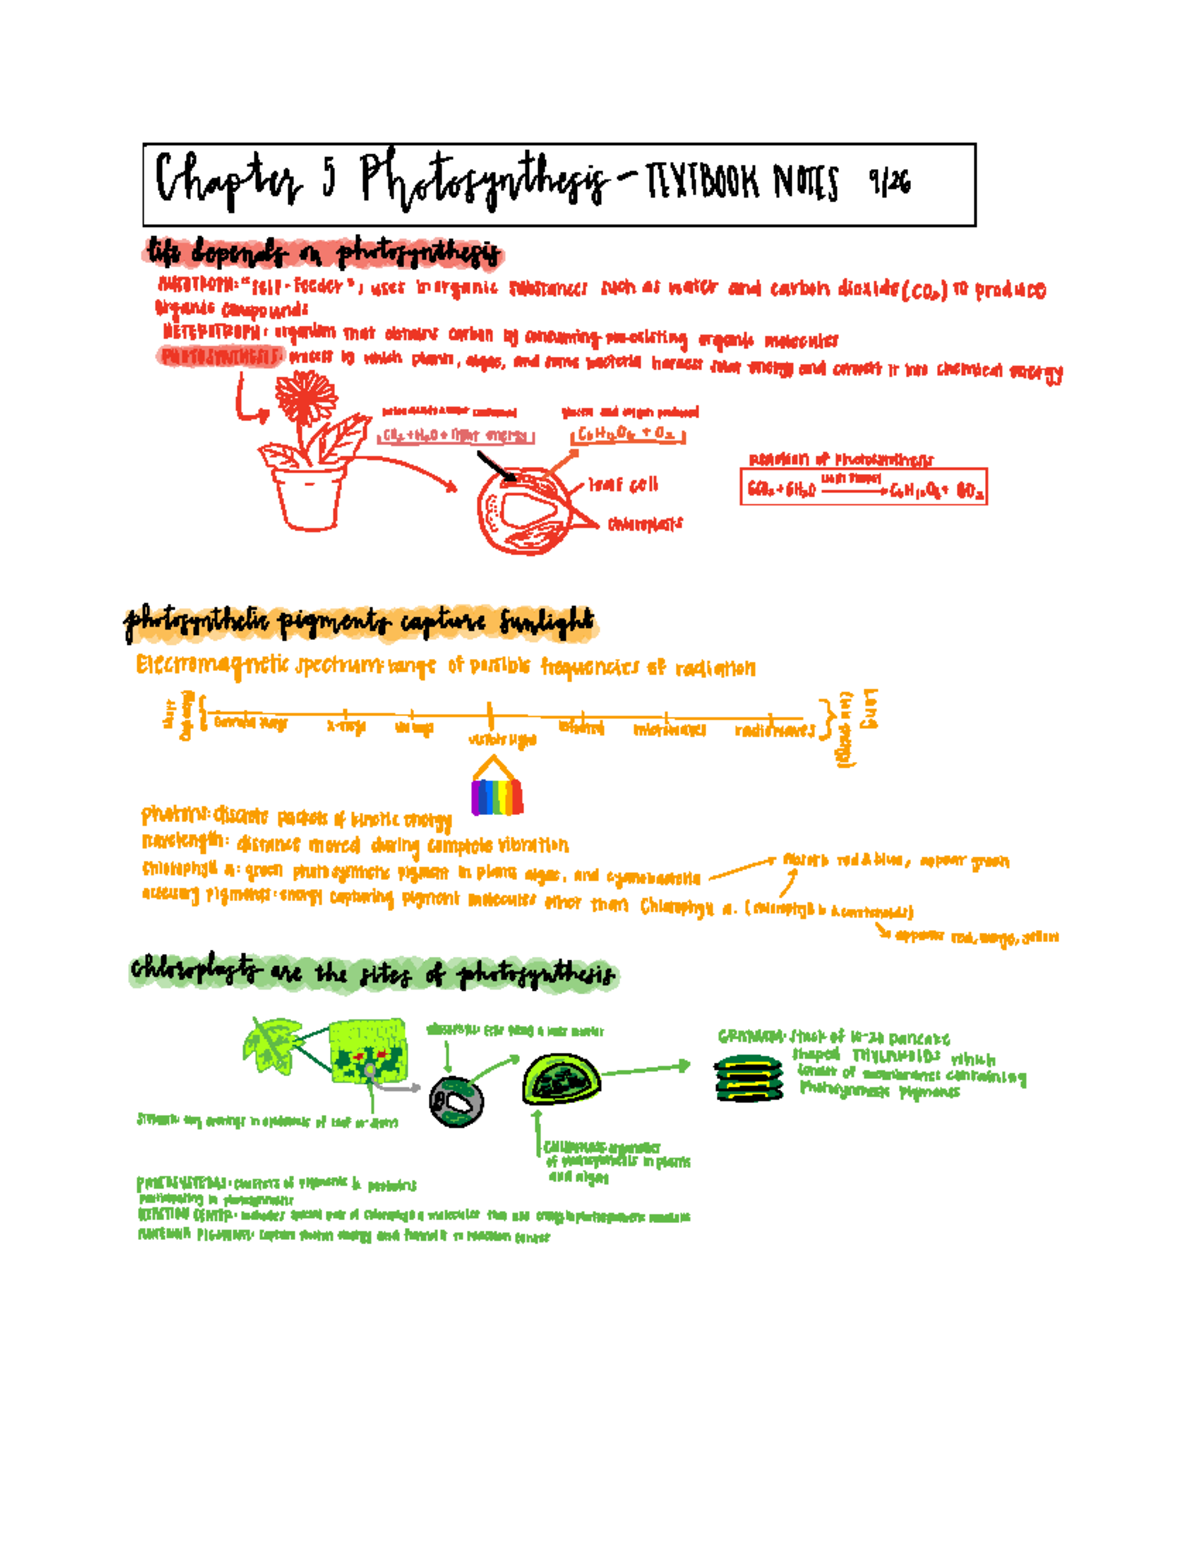 Chapter 5 Photosynthesis - TEXTBOOK NOTES 9/26
life depends on photosynthesis
AUTOTROPH: "self-feeder", uses inorganic substances such as water and carbon dioxide (CO₂) to produce
organic compounds
HETEROTROPH: organism that obtains carbon by consuming pre-existing organic molecules
PHOTOSYNTHESIS: process by which plants, algae, and some bacteria harness solar energy and convert it into chemical energy
glucose and oxygen produced
CO₂ + H₂O + light energy
C₆H₁₂O₆ + O₂
leaf cell
chloroplasts
Reaction of Photosynthesis
light energy
6CO₂ + 6H₂O → C₆H₁₂O₆ + 6O₂
photosynthetic pigments capture sunlight
Electromagnetic spectrum: range of possible frequencies of radiation
short
(high energy)
Gamma rays
x-rays
uv rays
visible light
infrared
microwaves
radiowaves
Long
(low energy)
photons: discrete packets of kinetic energy
wavelength: distance moved during complete vibration
chlorophyll a: green photosynthetic pigment in plants algae, and cyanobacteria
absorb red & blue, appear green
accessory pigments: energy capturing pigment molecules other than Chlorophyll a. (chlorophyll b & carotenoids)
appear red, orange, yellow
chloroplasts are the sites of photosynthesis
MESOPHYLL: cells filling a leaf interior
GRANUM: stack of 10-20 pancake
shaped THYLAKOIDS which
consist of membranes containing
photosynthesis pigments
STOMATA: tiny openings in epidermis of leaf or stem
CHLOROPLAST: organelles
of photosynthesis in plants
and algae
PHOTOSYSTEMS: clusters of pigments & proteins
participating in photosynthesis
REACTION CENTER: includes special pair of chlorophyll a molecules that use energy in photosynthetic reactions
ANTENNA PIGMENTS: capture photon energy and funnel it to reaction center